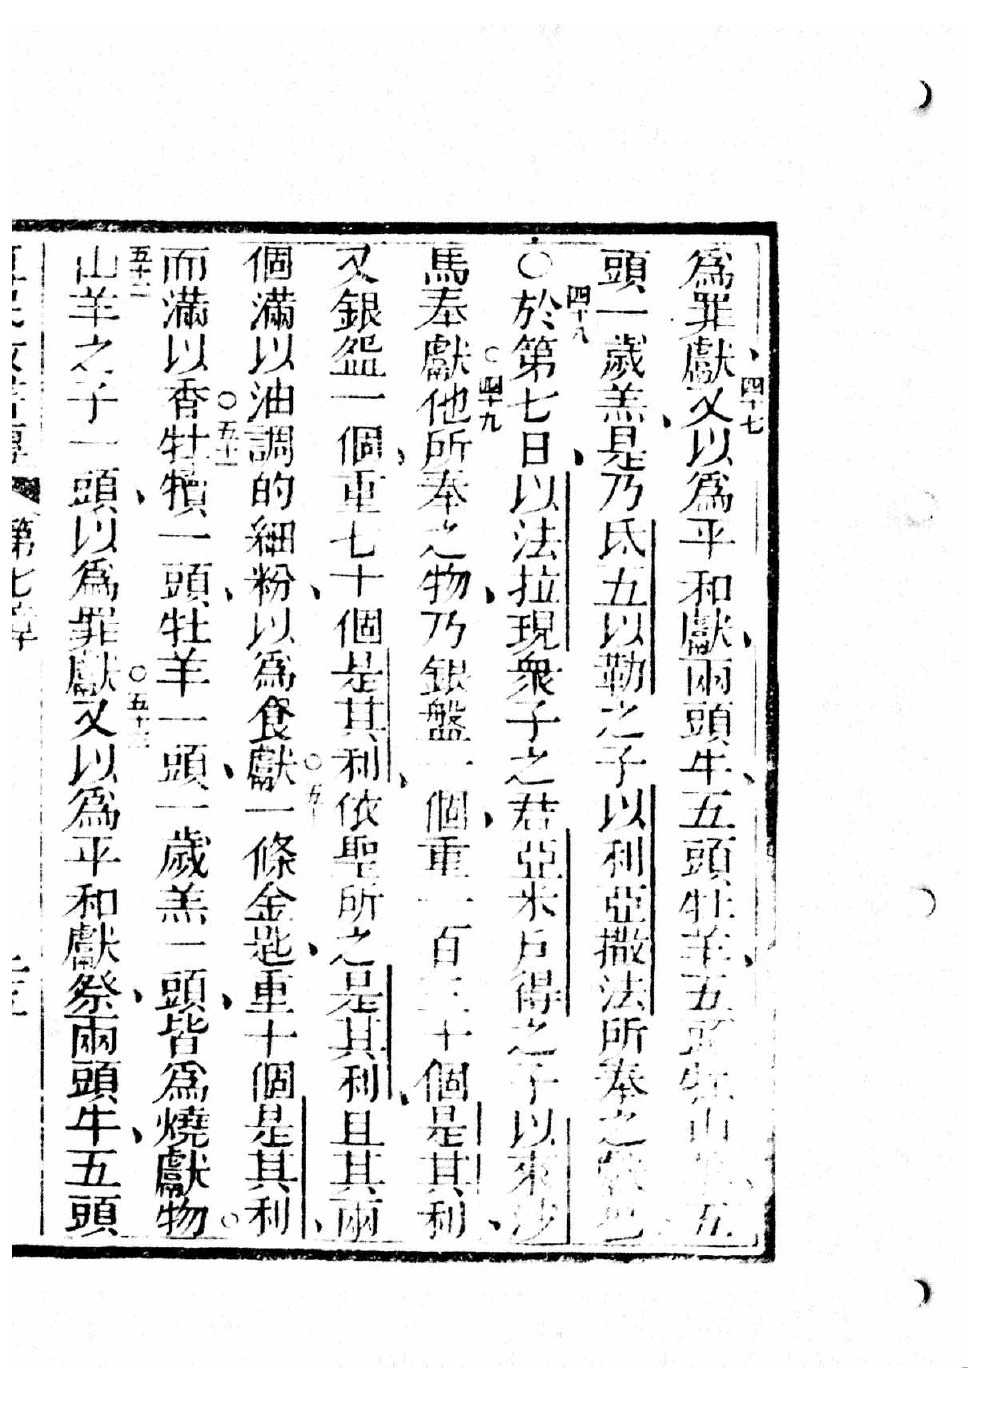 爲罪獻、四十七又以爲平和獻、兩頭牛、五頭牡羊、五頭牡山羊、五
頭一歲羔、是乃氐五以勒之子以利亞撒法所奉之祭也
○四十八於第七日、以法拉現衆子之君亞米戶得之子以來沙
馬奉獻○四十九他所奉之物、乃銀盤一個、重一百三十個是其利、
又銀盌一個、重七十個是其利、依聖所之是其利、且其兩
個滿以油調的細粉、以爲食獻○五十一條金匙、重十個是其利、
而滿以香○五十一牡犢一頭、牡羊一頭、一歲羔一頭、皆爲燒獻物○
五十二山羊之子一頭、以爲罪獻○五十三又以爲平和獻祭、兩頭牛、五頭
第七章